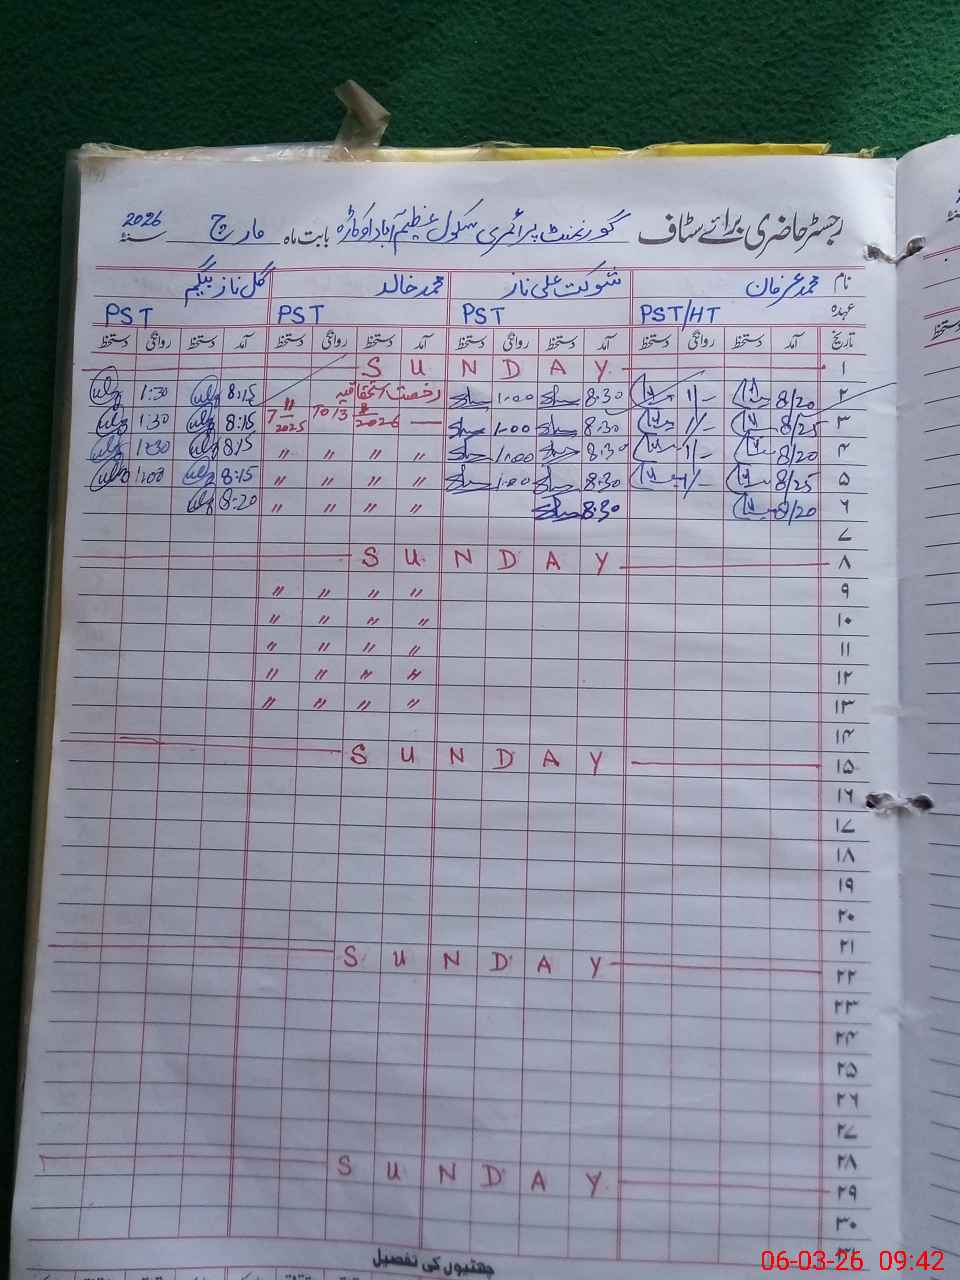 رجسٹر حاضری برائے سٹاف گورنمنٹ پرائمری سکول عظیم آباد اوکاڑہ بابت ماہ مارچ سنہ 2026
نام محمد عرفان شوکت علی ناز محمد خالد گل ناز بیگم
عہدہ PST/HT PST PST PST
تاریخ آمد دستخط روانگی دستخط آمد دستخط روانگی دستخط آمد دستخط روانگی دستخط آمد دستخط روانگی دستخط
۱ SUNDAY
۲ 8/20 1/- 8:30 1:00 رخصت استحقاقیہ 8:15 1:30
۳ 8/25 1/- 8:30 1:00 7 11 2025 To 13 2026 8:15 1:30
۴ 8/20 1/- 8:30 1:00 " " " " 8:15 1:30
۵ 8/25 1/- 8:30 1:00 " " " " 8:15 1:00
۶ 8/20 8:30 " " " " 8:20
۷
۸ SUNDAY
۹ " " " "
۱۰ " " " "
۱۱ " " " "
۱۲ " " " "
۱۳ " " " "
۱۴
۱۵ SUNDAY
۱۶
۱۷
۱۸
۱۹
۲۰
۲۱
۲۲ SUNDAY
۲۳
۲۴
۲۵
۲۶
۲۷
۲۸
۲۹ SUNDAY
۳۰
۳۱
چھٹیوں کی تفصیل
06-03-26 09:42